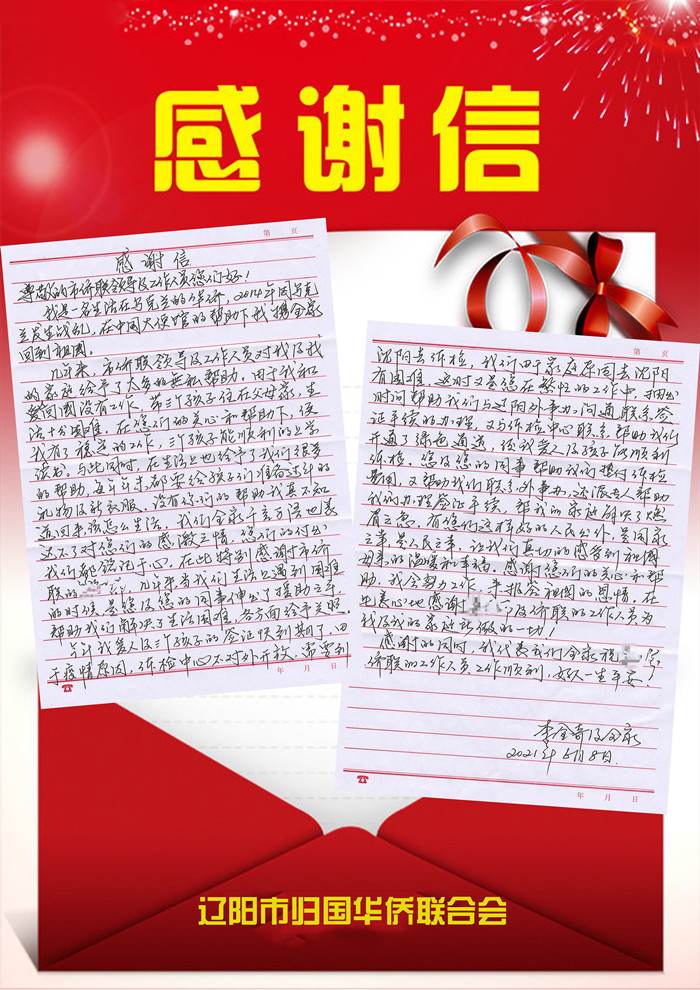 感谢信
第 页
感谢信
尊敬的市侨联领导及工作人员您们好！
我是一名生活在乌克兰的华侨，2014年因乌克
兰发生战乱，在中国大使馆的帮助下我携全家
回到祖国。
几年来，市侨联领导及工作人员对我及我
的家庭给予了太多的无私帮助。由于我和
妻回国没有工作，带三个孩子住在父母家，生
活十分困难，在您们的关心和帮助下，使
我有了稳定的工作，三个孩子能顺利的上学
读书，与此同时，在生活上也给予了我们很多
的帮助，每年年末都要给孩子们准备过年的
礼物及新衣服，没有您们的帮助我真不知
道回来该怎么生活。我们全家千言万语也表
达不了对您们的感激之情，您们的付出
我们都铭记于心，在此特别感谢市侨
联的 几年来当我们生活上遇到困难
的时候总是您及您的同事伸出了援助之手
帮助我们解决了生活困难，各方面给予关照。
今年我爱人及三个孩子的签证快到期了，由
于疫情原因，体检中心不对外开放，需要到
年 月 日
第 页
沈阳去体检，我们由于家庭原因去沈阳
有困难，这时又是您在繁忙的工作中，抽出
时间帮助我们与辽阳外事办，沟通联系签
证手续的办理，又与体检中心联系帮助我们
开通了绿色通道，给我爱人及孩子们顺利
体检。您及您的同事帮助我们垫付体检
费用，又帮助我们联系外事办，还派专人帮助
我们办理签证手续，帮我的家庭解决了燃
眉之急，有您们这样好的人民公仆，是国家
之幸是人民之幸，让我们真切的感受到祖国
母亲的温暖和幸福。感谢您们的关心和帮
助，我会努力工作，来报答祖国的恩情，在
此衷心地感谢 及侨联的工作人员为
我及我的家庭所做的一切！
感谢的同时，我代表我们全家祝
侨联的工作人员工作顺利，好人一生平安！
李金奇及全家
2021年6月8日
年 月 日
辽阳市归国华侨联合会